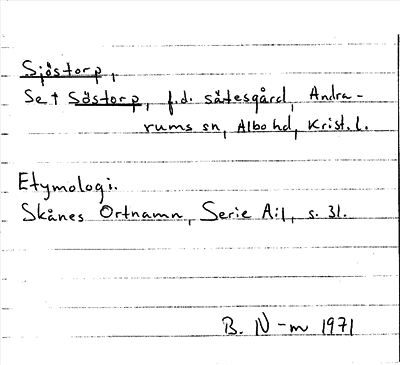 Sjöstorp,
Se ↑ Söstorp, f.d. sätesgård, Andra-
rums sn, Albo hd, Krist. l.
Etymologi.
Skånes Ortnamn, Serie A:1, s. 31.
B. N-m 1971